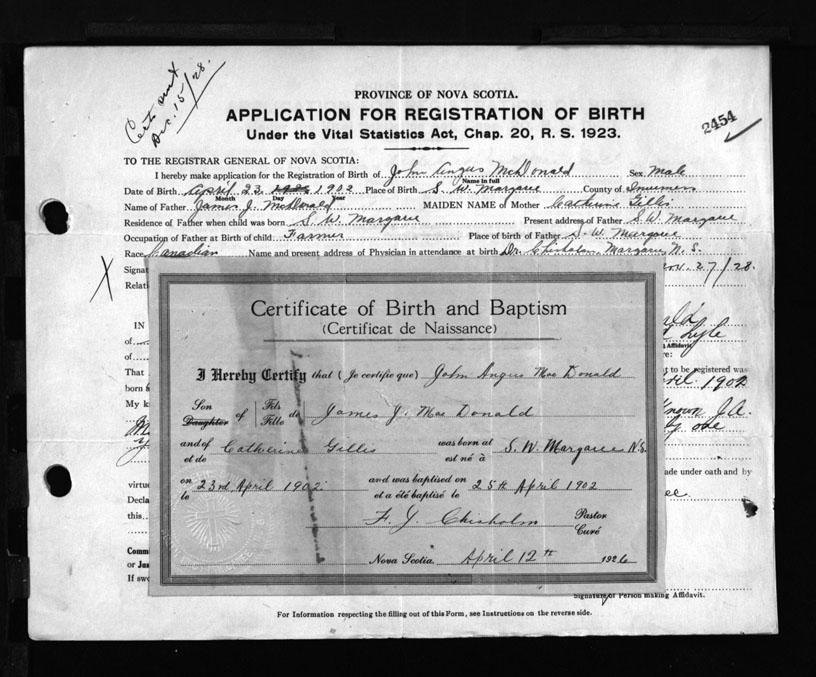 Cert sent
Dec. 15/28.
PROVINCE OF NOVA SCOTIA.
APPLICATION FOR REGISTRATION OF BIRTH
Under the Vital Statistics Act, Chap. 20, R. S. 1923.
2454
TO THE REGISTRAR GENERAL OF NOVA SCOTIA:
I hereby make application for the Registration of Birth of John Angus McDonald Sex Male
Name in full
Date of Birth April 23 1902 Place of Birth S. W. Margaree County of Inverness
Month Day Year
Name of Father James J. McDonald MAIDEN NAME of Mother Catherine Gillis
Residence of Father when child was born S. W. Margaree Present address of Father S. W. Margaree
Occupation of Father at Birth of child Farmer Place of birth of Father S. W. Margaree
Race Canadian Name and present address of Physician in attendance at birth Dr. Chisholm, Margaree, N. S.
Signat Nov. 27/28.
Relati
X
IN
of
of
Affidavit
re:
That nt to be registered was
born pril 1902
My k known J.A.
by one
ade under oath and by
virtue
Decla
this
Comm
or Jus
If swo
Certificate of Birth and Baptism
(Certificat de Naissance)
I Hereby Certify that (Je certifie que) John Angus Mac Donald
Son Daughter of Fils Fille de James J. Mac Donald
and of et de Catherine Gillis was born at est né à S. W. Margaree N.S.
on le 23rd April 1902 and was baptised on et a été baptisé le 25th April 1902
F. J. Chisholm Pastor Curé
Nova Scotia. April 12th 1926
Signature of Person making Affidavit.
For Information respecting the filling out of this Form, see Instructions on the reverse side.